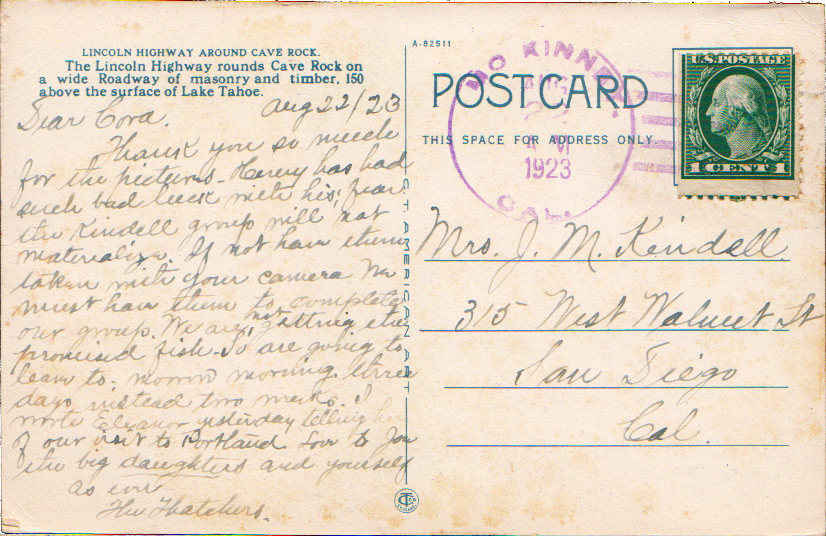 LINCOLN HIGHWAY AROUND CAVE ROCK.
The Lincoln Highway rounds Cave Rock on
a wide Roadway of masonry and timber, 150
above the surface of Lake Tahoe.
Aug 22/23
Dear Cora.
Thank you so much
for the pictures. Henry has had
such bad luck with his, fear
the Kindell group will not
materialize. If not have them
taken with your camera We
must have them to complete
our group. We are not getting the
promised fish - So are going to
leave to-morrow morning. three
days instead two weeks. I
wrote Eleanor yesterday telling her
of our visit to Portland. Love to Jon
the big daughters and yourself
as ever
The Thatchers.
A-82511
POST CARD
THIS SPACE FOR ADDRESS ONLY.
MC KINNEY,
AUG
1923
CAL.
U.S. POSTAGE
1 CENT 1
C.T. AMERICAN ART
Mrs. J. M. Kendall.
315 West Walnut St
San Diego
Cal.